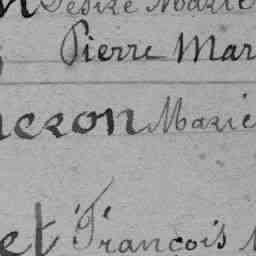 Désiré Marie
Pierre Mar
neron Marie
et François